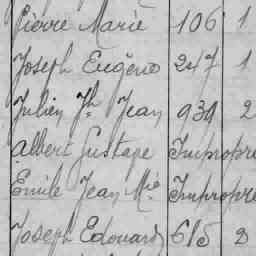 Pierre Marie 106 1
Joseph Eugène 247 1
Julien Jh Jean 934 2
Albert Gustave Impropre
Emile Jean Mie Impropre
Joseph Edouard 615 2